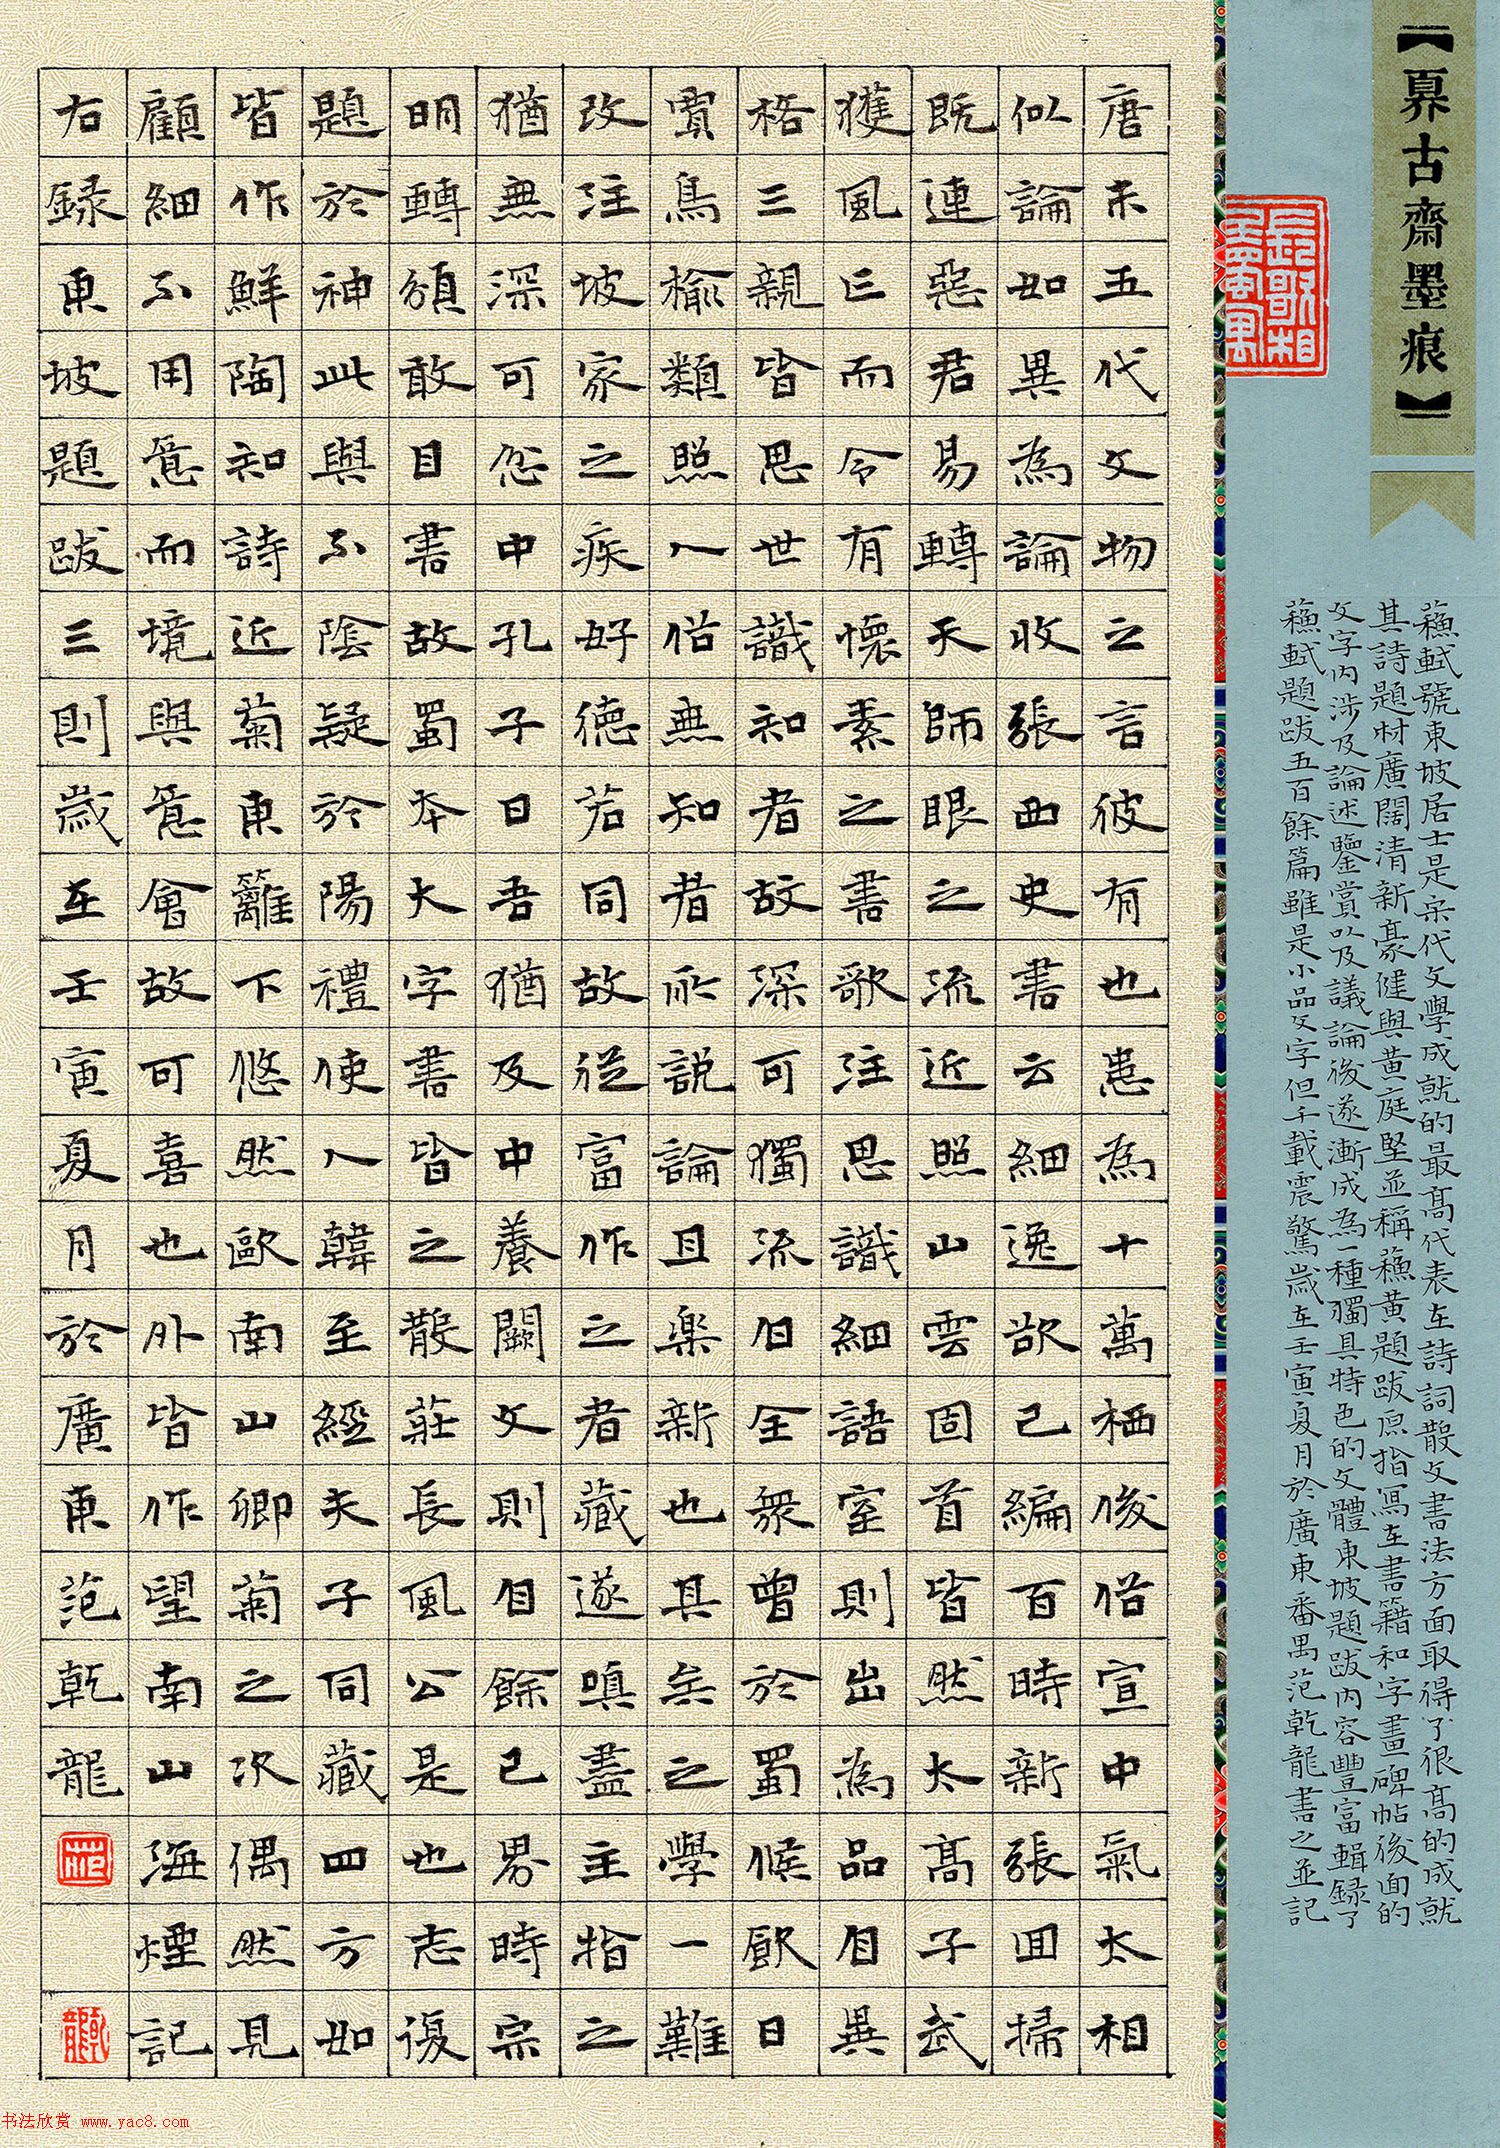 古齋墨痕】
蘓軾號東坡居士是宋代文學成就的最高代表在詩詞散文書法方面取得了很高的成就
其詩題材廣闊清新豪健與黃庭堅並稱蘓黃題跋原指寫在書籍和字畫碑帖後面的
文字内涉及論述鑒賞以及議論後遂漸成為一種獨具特色的文體東坡題跋内容豐富輯録了
蘓軾題跋五百餘篇雖是小品文字但千載震驚歲在壬寅夏月於廣東番禺范乾龍書之並記
唐末五代文物之言彼有也恚為十萬栖後俗宣中氣太相
似論如異為論收張西史書云細逸欲已編百時新張囬掃
既連惡君易轉天師眼之流近照山雲固首皆然太高子武
獲風亡而令有懷素之書歌注思識細語室則出為品自異
格三親皆思世識知者故深可獨流自全衆曾於蜀候歐日
實鳥榆類照人俗無知者所說論且樂新也其矣之學一難
改注坡家之疾好德若同故從富作之者藏遂嗔盡主指之
猶無深可忽中孔子日吾猶及中養闕文則自餘已畧時宗
明轉頌敢目書故蜀本大字書皆之散莊長風公是也志復
題於神此與不陰疑於陽禮使人韓至經夫子同藏四方如
皆作鮮陶知詩近菊東籬下悠然歐南山卿菊之次偶然見
顧細不用意而境與意會故可喜也外皆作望南山海煙記
右録東坡題跋三則歲在壬寅夏月於廣東范乾龍
书法欣赏 www.yac8.com